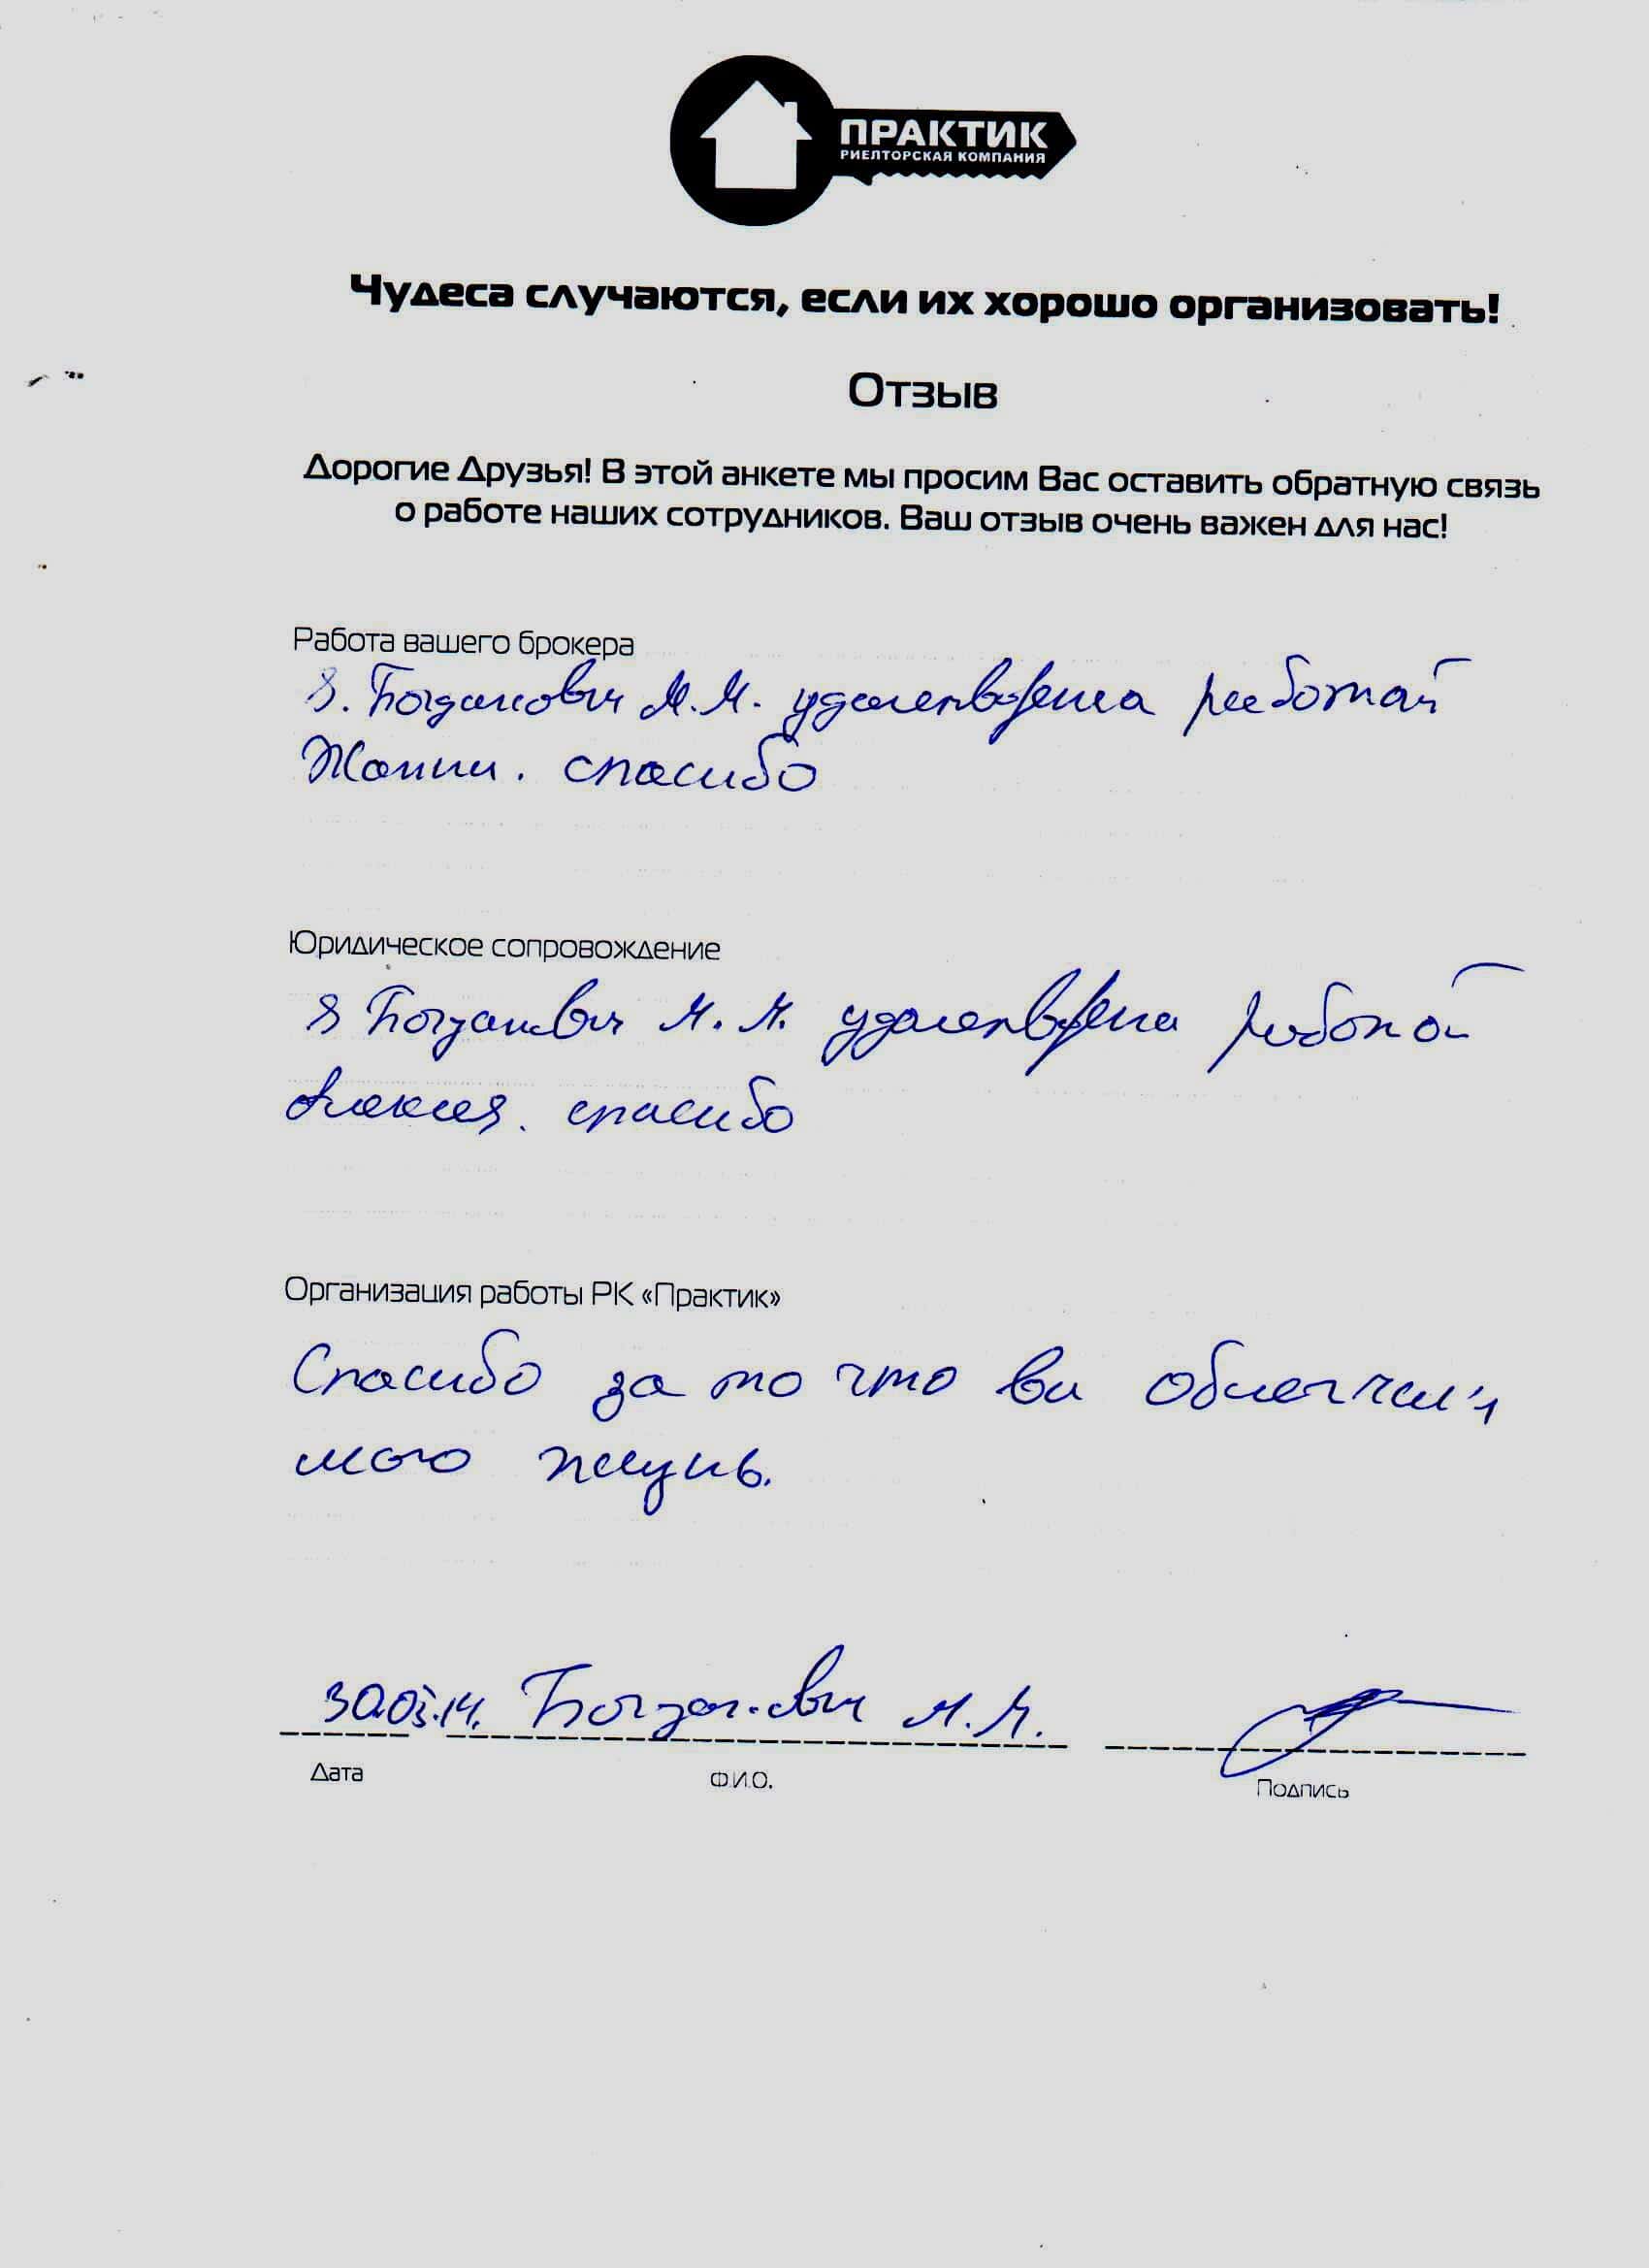 ПРАКТИК
РИЕЛТОРСКАЯ КОМПАНИЯ
Чудеса случаются, если их хорошо организовать!
Отзыв
Дорогие Друзья! В этой анкете мы просим Вас оставить обратную связь
о работе наших сотрудников. Ваш отзыв очень важен для нас!
Работа вашего брокера
Я. Богданович М.М. удовлетворена работай
Жанни. спасибо
Юридическое сопровождение
Я Богданович М.М. удовлетворена работой
спасибо
Организация работы РК «Практик»
Спасибо за то что ви облегчали
мою жизнь.
30.03.14. Богданович М.М.
Дата Ф.И.О. Подпись